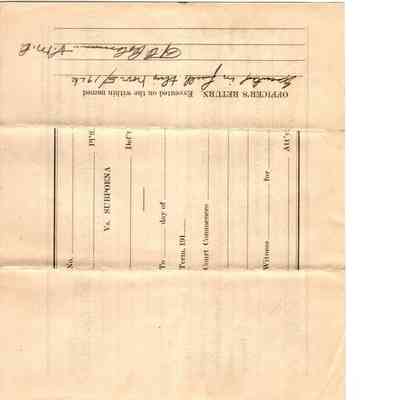 No.
Pl'ff.
Vs. SUBPOENA
Def't
To day of
Term, 191
Court Commences
Witness for
Att'y.
OFFICER'S RETURN. Executed on the within named
in full this Nov